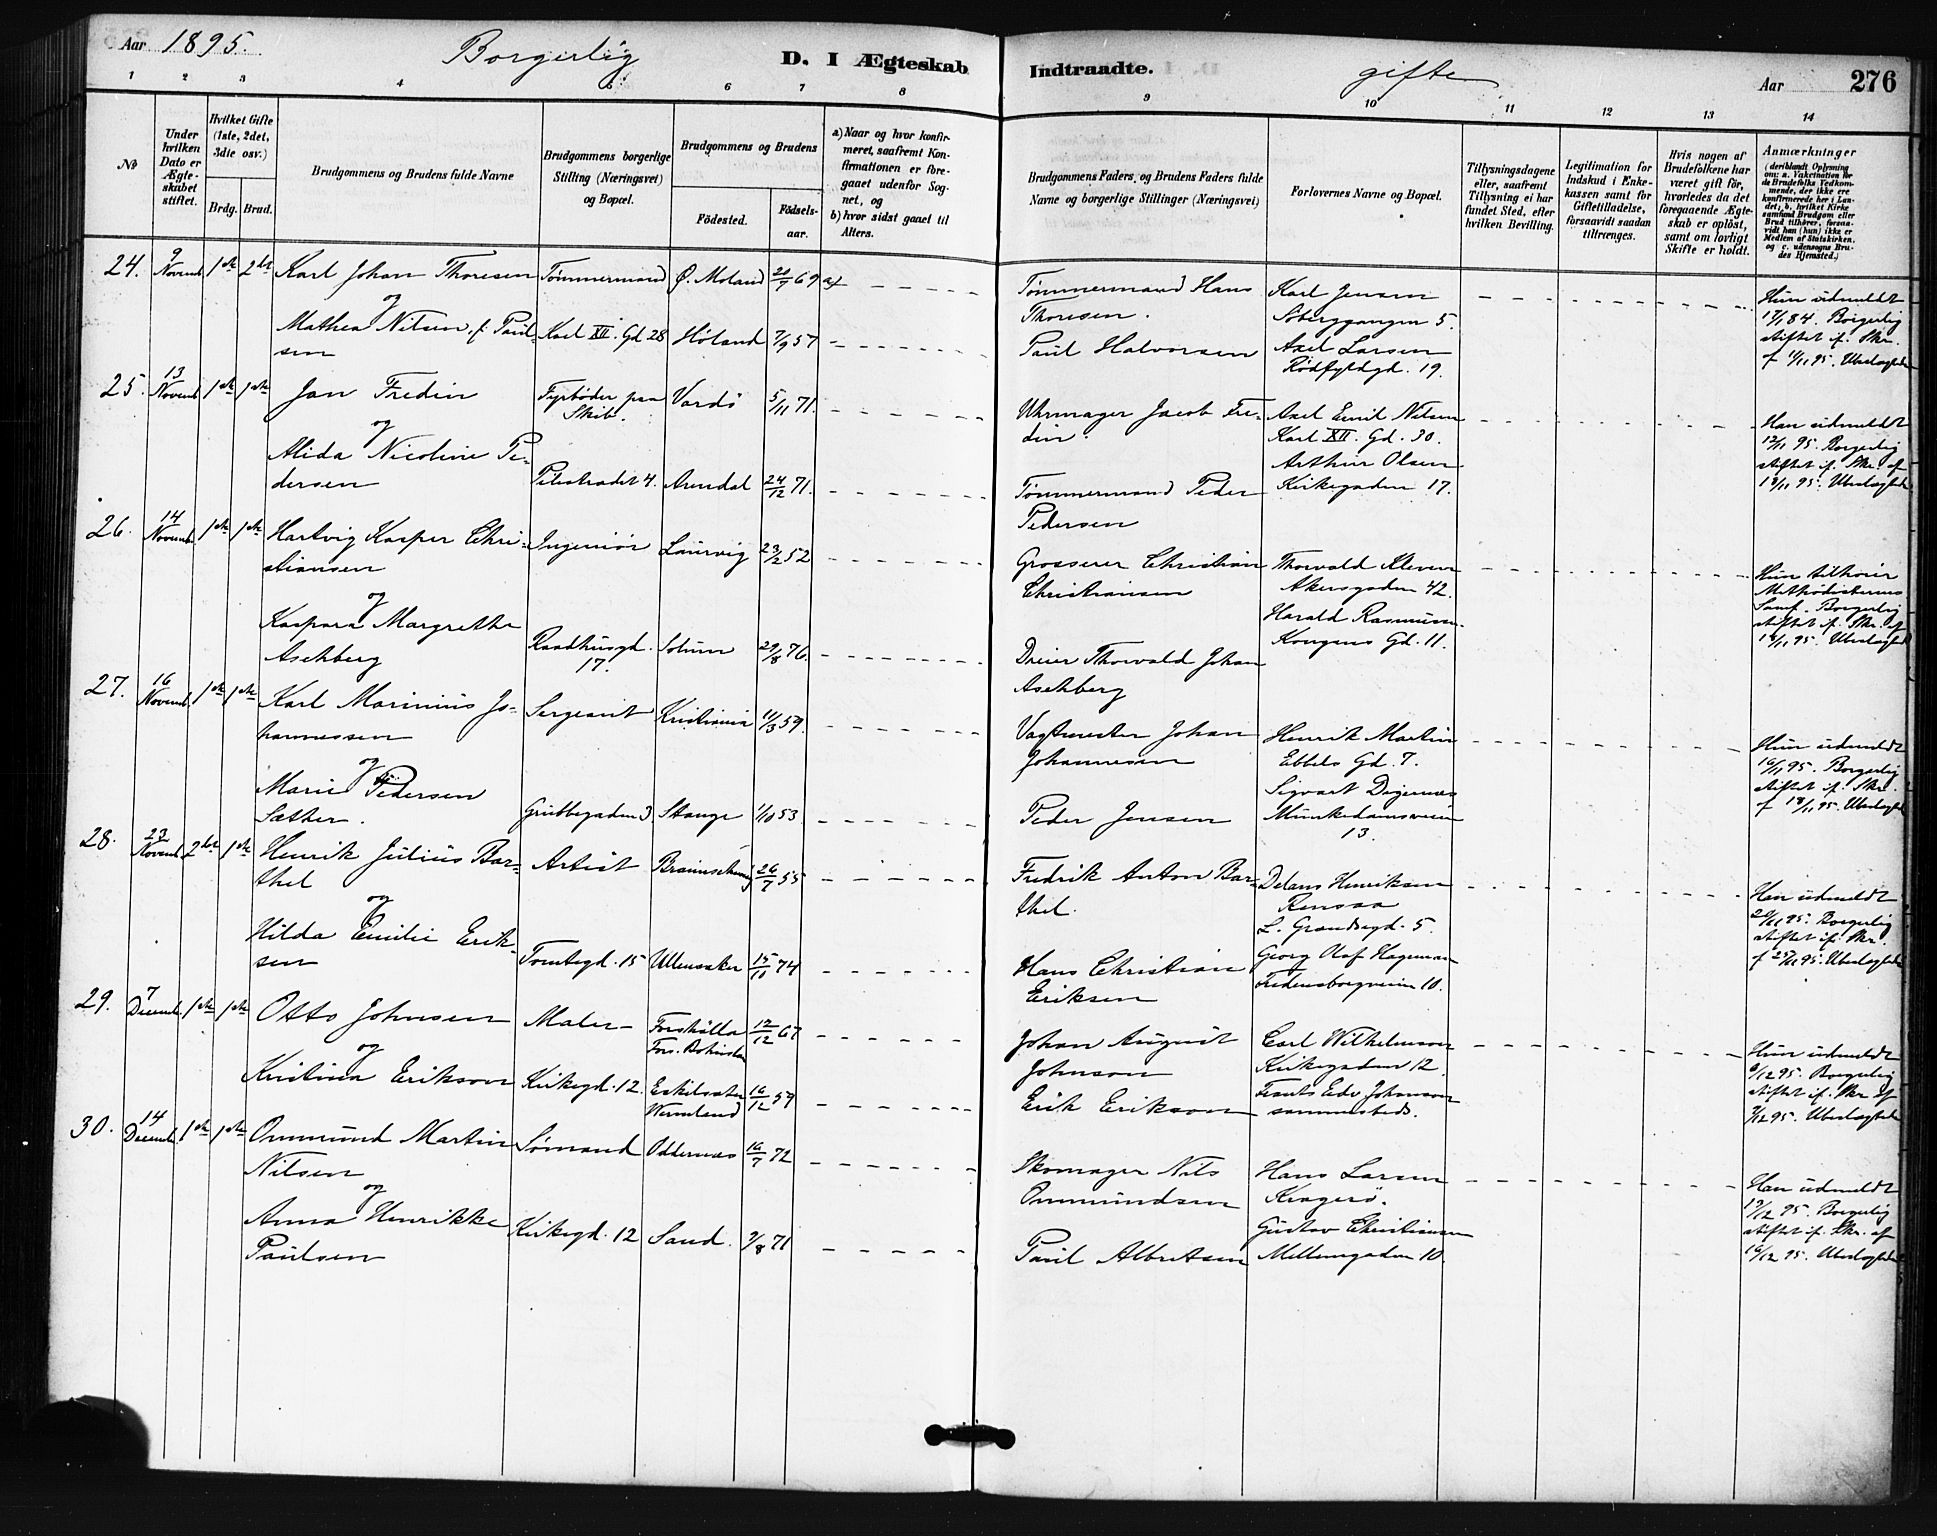 Aar 1895. Borgerlig D. I Ægteskab Indtraadte. gifte Aar 276
1 2 3 4 5 6 7 8 9 10 11 12 13 14
No
Under hvilken Dato er Ægteskabet stiftet.
Hvilket Gifte (1ste, 2det, 3die osv.)
Brdg. Brud.
Brudgommens og Brudens fulde Navne
Brudgommens borgerlige Stilling (Næringsvei) og Bopæl.
Brudgommens og Brudens
Födested. Födselsaar.
a) Naar og hvor konfirmeret, saafremt Konfirmationen er foregaaet udenfor Sognet, og
b) hvor sidst gaaet til Alters.
Brudgommens Faders og Brudens Faders fulde Navne og borgerlige Stillinger (Næringsvei)
Forlovernes Navne og Bopæl.
Tillysningsdagene eller, saafremt Tillysning ei har fundet Sted, efter hvilken Bevilling.
Legitimation for Indskud i Enkekassen samt for Giftetilladelse, forsaavidt saadan tiltrænges.
Hvis nogen af Brudefolkene har været gift för, hvorledes da det foregaaende Ægteskab er oplöst, samt om lovligt Skifte er holdt.
Anmærkninger
24. 9 Novemb. 1ste 2det Karl Johan Thoresen Tømmermand Ø. Moland 20/7 69 a)
Tømmermand Hans Thoresen. Karl Jensen Søberggangen 5.
og
Mathea Nilsen, f. Paulsen Karl XII. Gd 28 Höland 7/9 57
Paul Halvorsen Axel Larsen Rödfyldgd. 19.
Hun udmeldt 17/1 84. Borgerlig stiftet if. Skr. f 11/11 95.
25. 13 Novemb. 1ste 1ste Jan Fredin Fyrböder paa Skib. Vardö 5/11 71.
Uhrmager Jacob Fredin. Axel Emil Nilsen Karl XII. Gd. 30.
og
Alida Nicoline Pedersen Pilestrædet 4. Arendal 24/12 71.
Tømmermand Peder Pedersen Arthur Olsen Kirkegaden 17.
Han udmeldt 12/11 95. Borgerlig stiftet if. Skr. af
26. 14 Novemb. 1ste 1ste Hartvig Kasper Christiansen Ingeniör Laurvig 23/2 52
Grosserer Christian Christiansen Thorvald Kleven Akersgaden 42.
og
Kaspara Margrethe Aschberg Raadhusgd. 17. Solum 29/8 76.
Dreier Thorvald Johan Aschberg Harald Rasmussen Kongens Gd. 11.
Hun tilhörer Methodisternes Samf. Borgerlig stiftet if. Skr. af
27. 16 Novemb. 1ste 1ste Karl Marinius Johannessen Sergeant Kristiania 11/3 59.
Vagtmester Johan Johannesen Henrik Martin Ebbels Gd. 7.
og
Marie Pedersen Sæther. Grubbegaden 3 Stange 1/10 53
Peder Jensen Sigvart Digernæs Munkedamsveien 13.
Hun udmeldt 16/11 95. Borgerlig stiftet if. Skr. f 18/11 95.
28. 23 Novemb 2det 1ste Henrik Julius Barthel Artist Braunschweig 26/7 55
Fredrik Anton Barthel. Henriksen L. Grændsegd. 5.
og
Hilda Emilie Eriksen Tomtegd. 15 Ullensaker 74
Hans Christian Eriksen Georg Olaf Hageman Fredensborgveien 10.
Han udmeldt Borgerlig stiftet if. Skr.
29. 7 Decemb. 1ste 1ste Otto Johnsen Maler 12/12 67
Johan August Johnson Carl Wilhelmson Kirkegaden 12.
og
Kristina Erikson Kirkegd. 12. Wermland 16/12 59
Erik Erikson Frants Edv Johnson sammesteds.
Hun udmeldt 6/12 95. Borgerlig stiftet if. Skr af
30. 14 Decemb. 1ste 1ste Ommund Martin Nilsen Sømand Oddernæs 16/7 72
Skomager Nils Ommundsen Hans Larsen Kragerö.
og
Anna Henrikke Paulsen Kirkegd. 12 Sand. 9/8 71
Paul Albretsen Gustav Christiansen Mellemgaden 10.
Han udmeldt Borgerlig stiftet if. Skr. af 16/12 95.